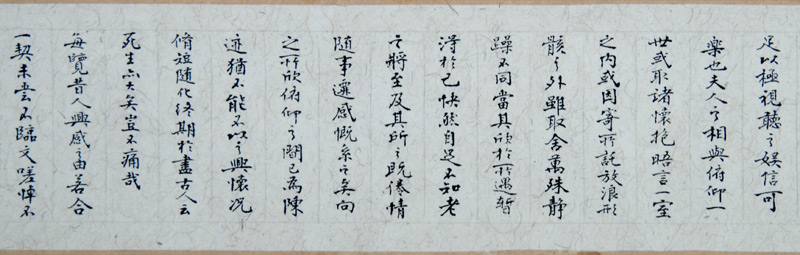 足以極視聽之娱信可
樂也夫人之相與俯仰一
世或取諸懷抱晤言一室
之内或因寄所託放浪形
骸之外雖取舍萬殊静
躁不同當其欣於所遇暫
得於己快然自足不知老
之將至及其所之既倦情
随事遷感慨系之矣向
之所欣俯仰之間已為陳
迹猶不能不以之興懷况
脩短随化終期於盡古人云
死生亦大矣豈不痛哉
每覽昔人興感之由若合
一契未嘗不臨文嗟悼不